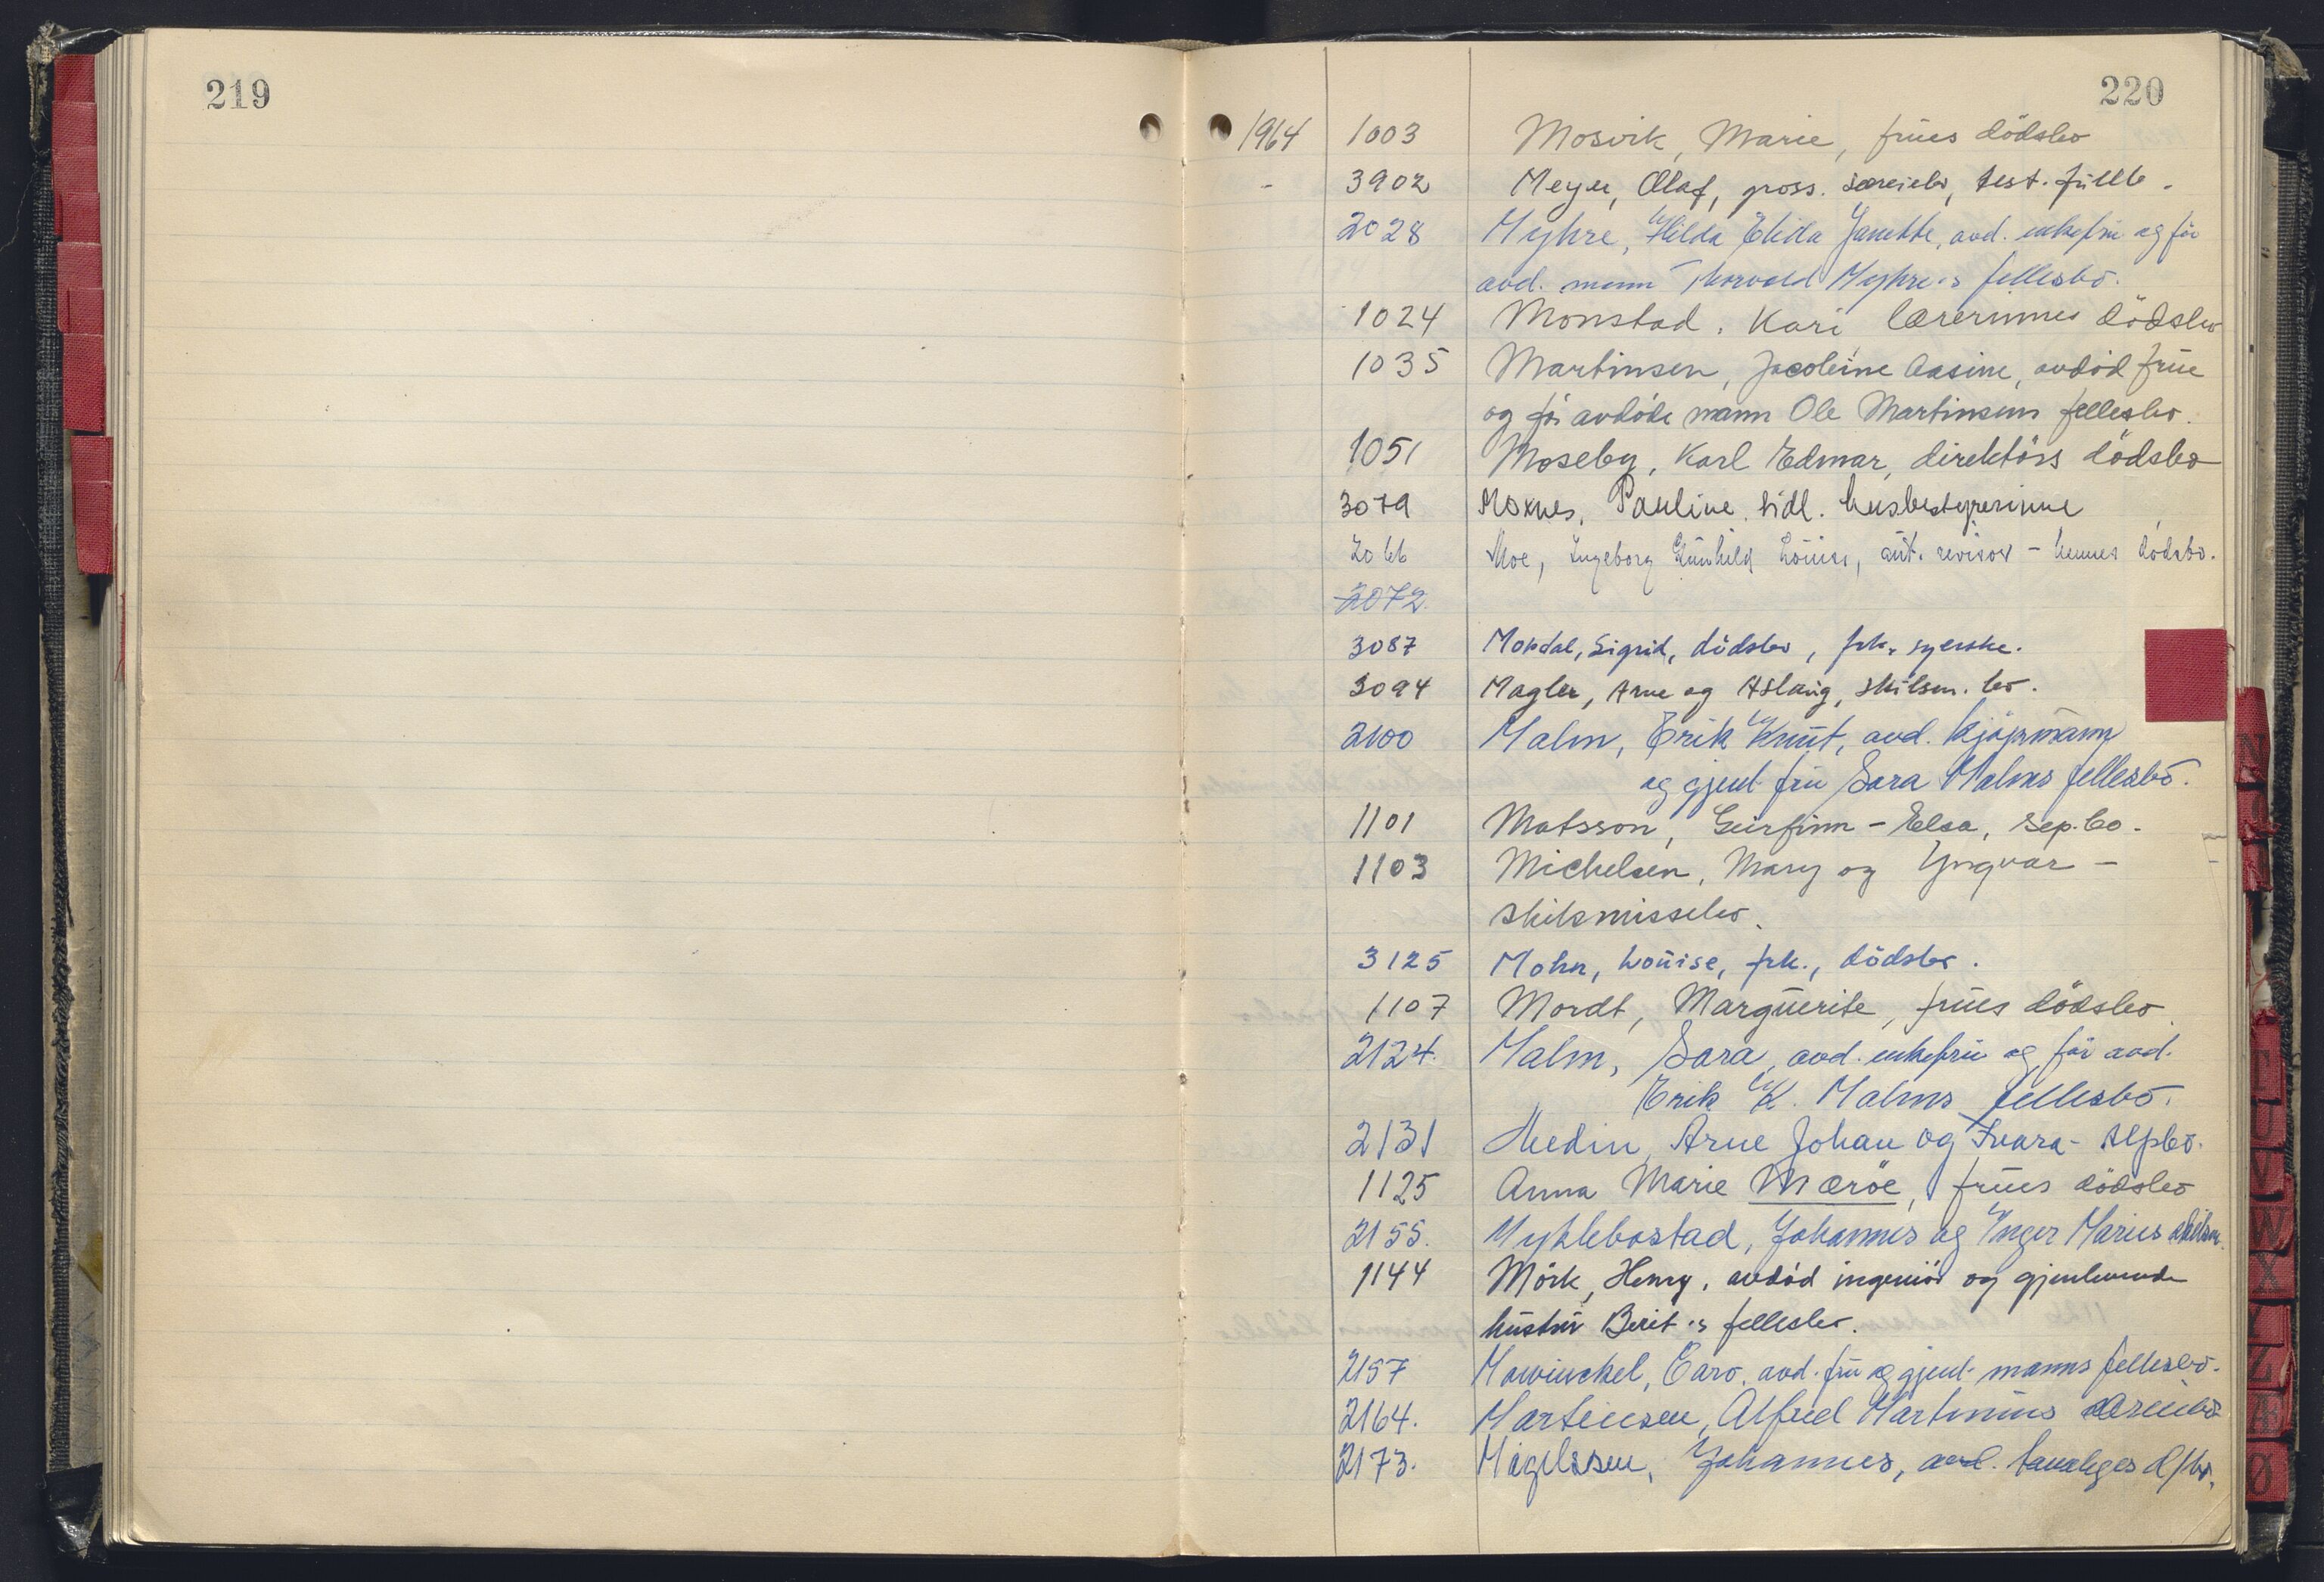 219
220
1964 1003 Mosvik, Marie, frues dödsbo
- 3902 Meyer, Olaf, gross. særeiebo, test. fullb.
2028 Myhre, Hilda Elida Janette, avd. enkefru og før
avd. mann Thorvald Myhre's fellesbo.
1024 Monstad, Kari, lærerinnes dödsbo
1035 Martinsen, Jacobine Aasine, avdöd frue
og før avdöde mann Ole Martinsens fellesbo.
1051 Moseby, Karl Edmar, direktörs dödsbo
3079 Moxnes, Pauline, tidl. husbestyrerinne
2066 Moe, Ingeborg Gunhild Louise, aut. revisor - hennes dödsbo.
2072
3087 Mordal, Sigrid, dödsbo, frk. syerske.
3094 Magler, Arne og Aslaug, skilsm. bo.
2100 Malm, Erik Knut, avd. kjøpmann
og gjenl. fru Sara Malms fellesbo.
1101 Matsson, Geirfinn - Elsa, sep.bo.
1103 Michelsen, Mary og Yngvar -
skilsmissebo.
3125 Mohn, Louise, frk., dödsbo.
1107 Mordt, Marguerite, frues dödsbo.
2124. Malm, Sara, avd. enkefru og før avd.
Erik K. Malms fellesbo.
2131 Medin, Arne Johan og Ivara -
1125 Anna Marie Mæröe, frues dödsbo
2155. Myklebostad, Johannes og Inger Maries skilsm.
1144 Mörk, Henry, avdöd ingeniör og gjenlevende
hustru Berit's fellesbo.
2157 Mowinckel, Caro, avd. fru og gjenl. manns fellesbo.
2164. Martinsen, Alfred Martinius særeiebo
2173. Magelssen, Johannes, avd. tannleges d/bo.